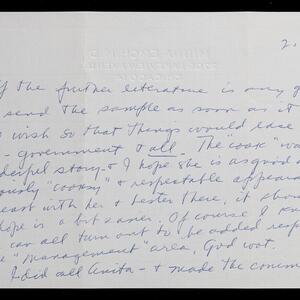 2.
if the further literature is any g
send the sample as soon as it
wish so that things would ease
- government & all. The "cook" wa
derful story - & I hope she is as good a
ously "cooksy" & respectable appeara
east with her & Lester there, it shou
hope is a bit saner. Of course I kn
can all turn out to be added resp
e "management" area, God wot.
I did call Anita - & made the comm